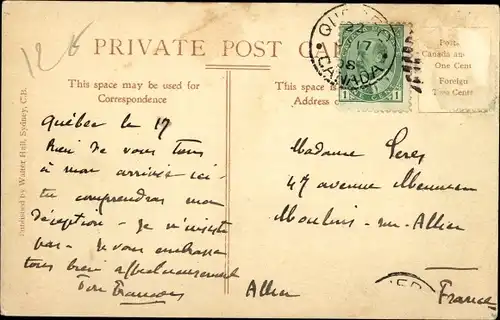 12 6
PRIVATE POST CA
This space may be used for
Correspondence
This space is
Address
QU
17
08
CANADA
1
CENT
1
Post
Canada an
One Cent
Foreign
Two Cents
Published by Walter Hull, Sydney, C.B.
Québec le 17
Rien de vous tous
à mon arrivée ici -
tu comprendras mon
déception - Je n'insiste
pas - Je vous embrasse
tous bien affectueusement
Ton François
Madame
47 avenue
Moulins-sur-Allier
Allier
France